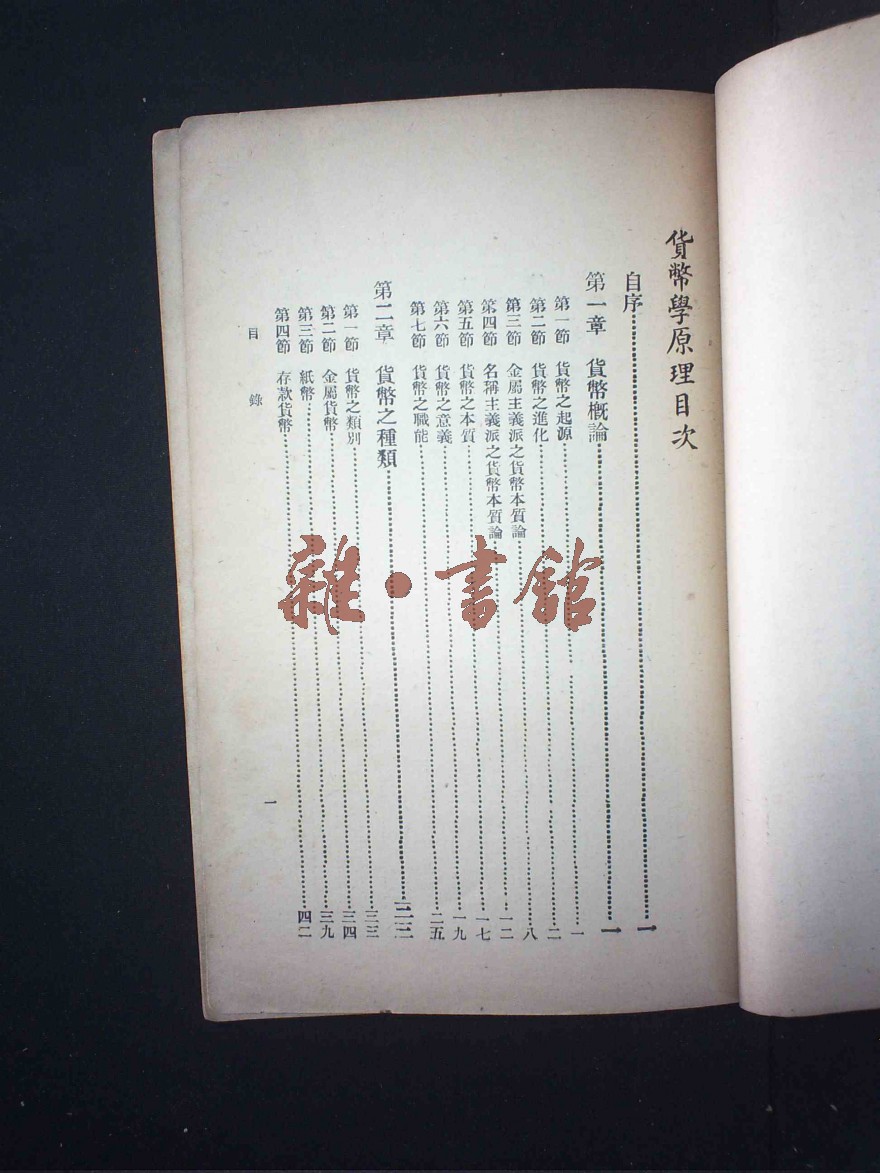 貨幣學原理目次
自序……一
第一章 貨幣概論……一
第一節 貨幣之起源……一
第二節 貨幣之進化……二
第三節 金屬主義派之貨幣本質論……八
第四節 名稱主義派之貨幣本質論……一二
第五節 貨幣之本質……一七
第六節 貨幣之意義……一九
第七節 貨幣之職能……二五
第二章 貨幣之種類……三三
第一節 貨幣之類別……三三
第二節 金屬貨幣……三四
第三節 紙幣……三九
第四節 存款貨幣……四二
目錄
一
雜·書館